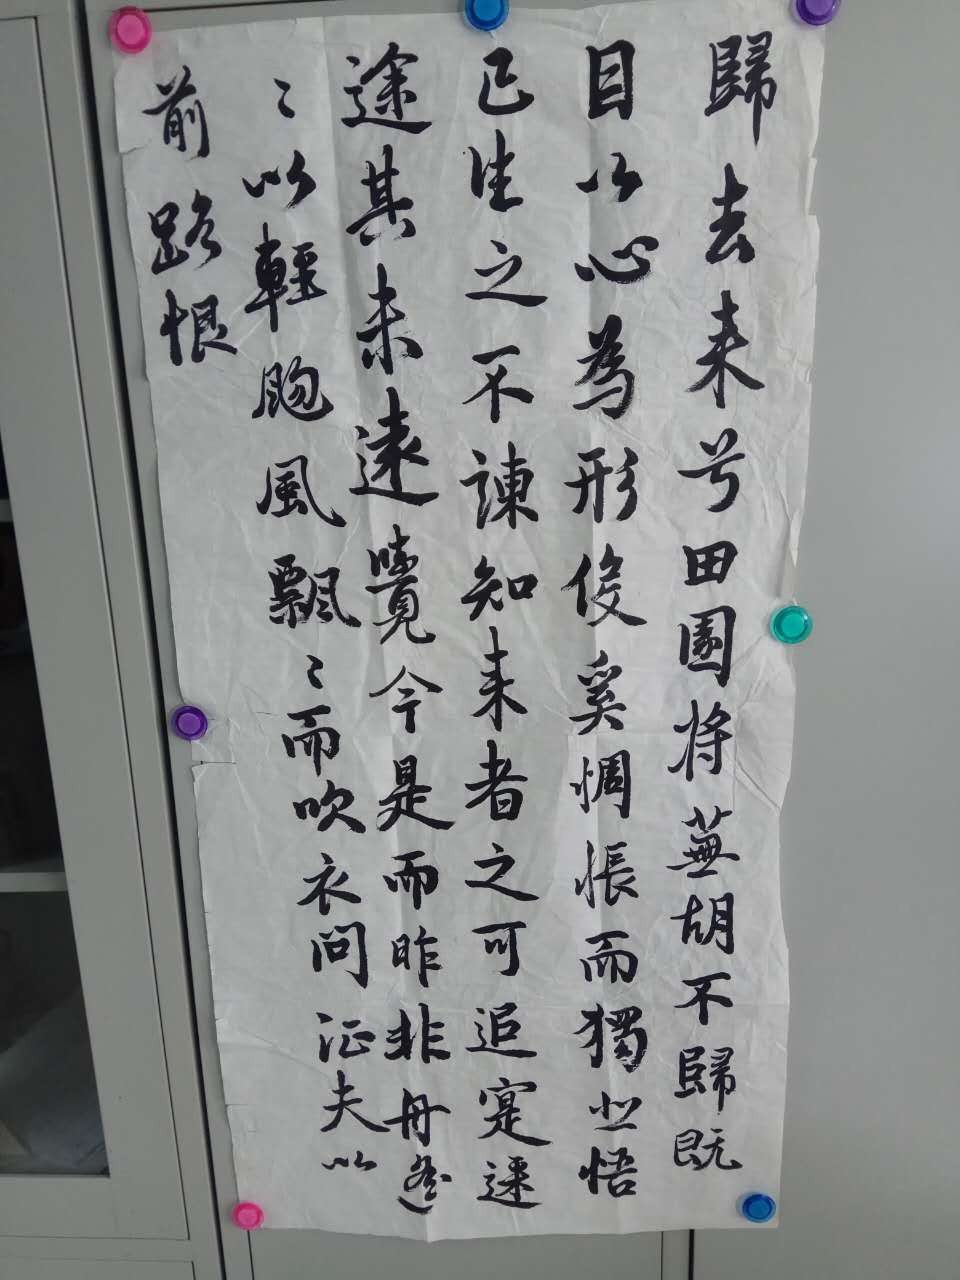 歸去来兮田園将蕪胡不歸既
目以心為形俊奚惆悵而獨悲悟
已往之不諫知来者之可追寔迷
途其未遠覺今是而昨非舟遙
〻以輕颺風飄〻而吹衣問征夫以
前路恨